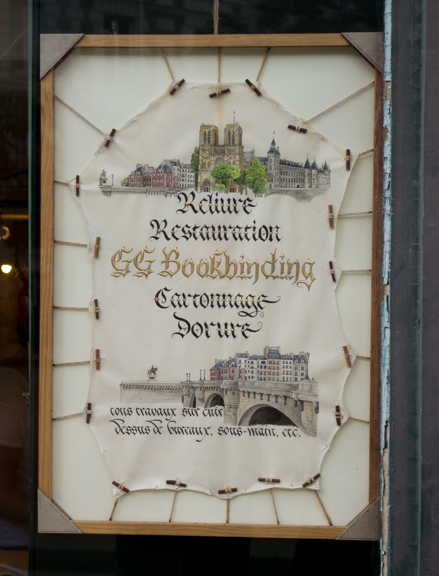 Reliure
Restauration
GG Bookbinding
Cartonnage
Dorure
tous travaux sur cuir
dessus de bureaux, sous-main, etc.